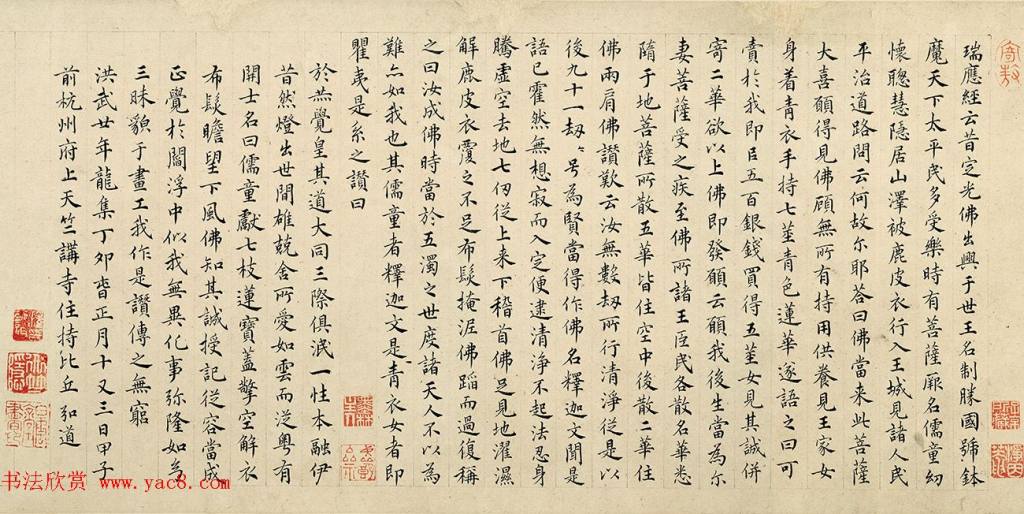 瑞應經云昔定光佛出興于世王名制勝國號鉢
魔天下太平民多受樂時有菩薩厥名儒童幼
懷聰慧隱居山澤被鹿皮衣行入王城見諸人民
平治道路問云何故尔耶荅曰佛當来此菩薩
大喜願得見佛顧無所有持用供養見王家女
身着青衣手持七莖青色蓮華遂語之曰可
賣於我即臣五百銀錢買得五莖女見其誠併
寄二華欲以上佛即發願云願我後生當為尔
妻菩薩受之疾至佛所諸王臣民各散名華悉
隋于地菩薩所散五華皆住空中後散二華住
佛兩肩佛讚歎云汝無數劫所行清淨從是以
後九十一劫〻号為賢當得作佛名釋迦文聞是
語已霍然無想寂而入定便逮清淨不起法忍身
騰虛空去地七仞從上来下稽首佛足見地濯濕
解鹿皮衣覆之不足布髮掩泥佛蹈而過復稱
之曰汝成佛時當於五濁之世度諸天人不以為
難亦如我也其儒童者釋迦文是青衣女者即
瞿夷是系之讚曰
於赫覺皇其道大同三際俱泯一性本融伊
昔然燈出世間雄兢舍所愛如雲而從粤有
開士名曰儒童獻七枝蓮寶蓋擎空解衣
布髮瞻望下風佛知其誠授記從容當成
正覺於閻浮中似我無異化事弥隆如是
三昧貌于畫工我作是讚傳之無窮
洪武廿年龍集丁夘旹正月十又三日甲子
前杭州府上天竺講寺住持比丘弘道
书法欣赏 www.yac8.com